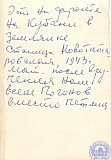 Эти на фронте
на Кубани в
Землянке
Станица Новотита
ровская, 1943.
Май, после вру-
чения нам
всем Погонов
вместо петлиц